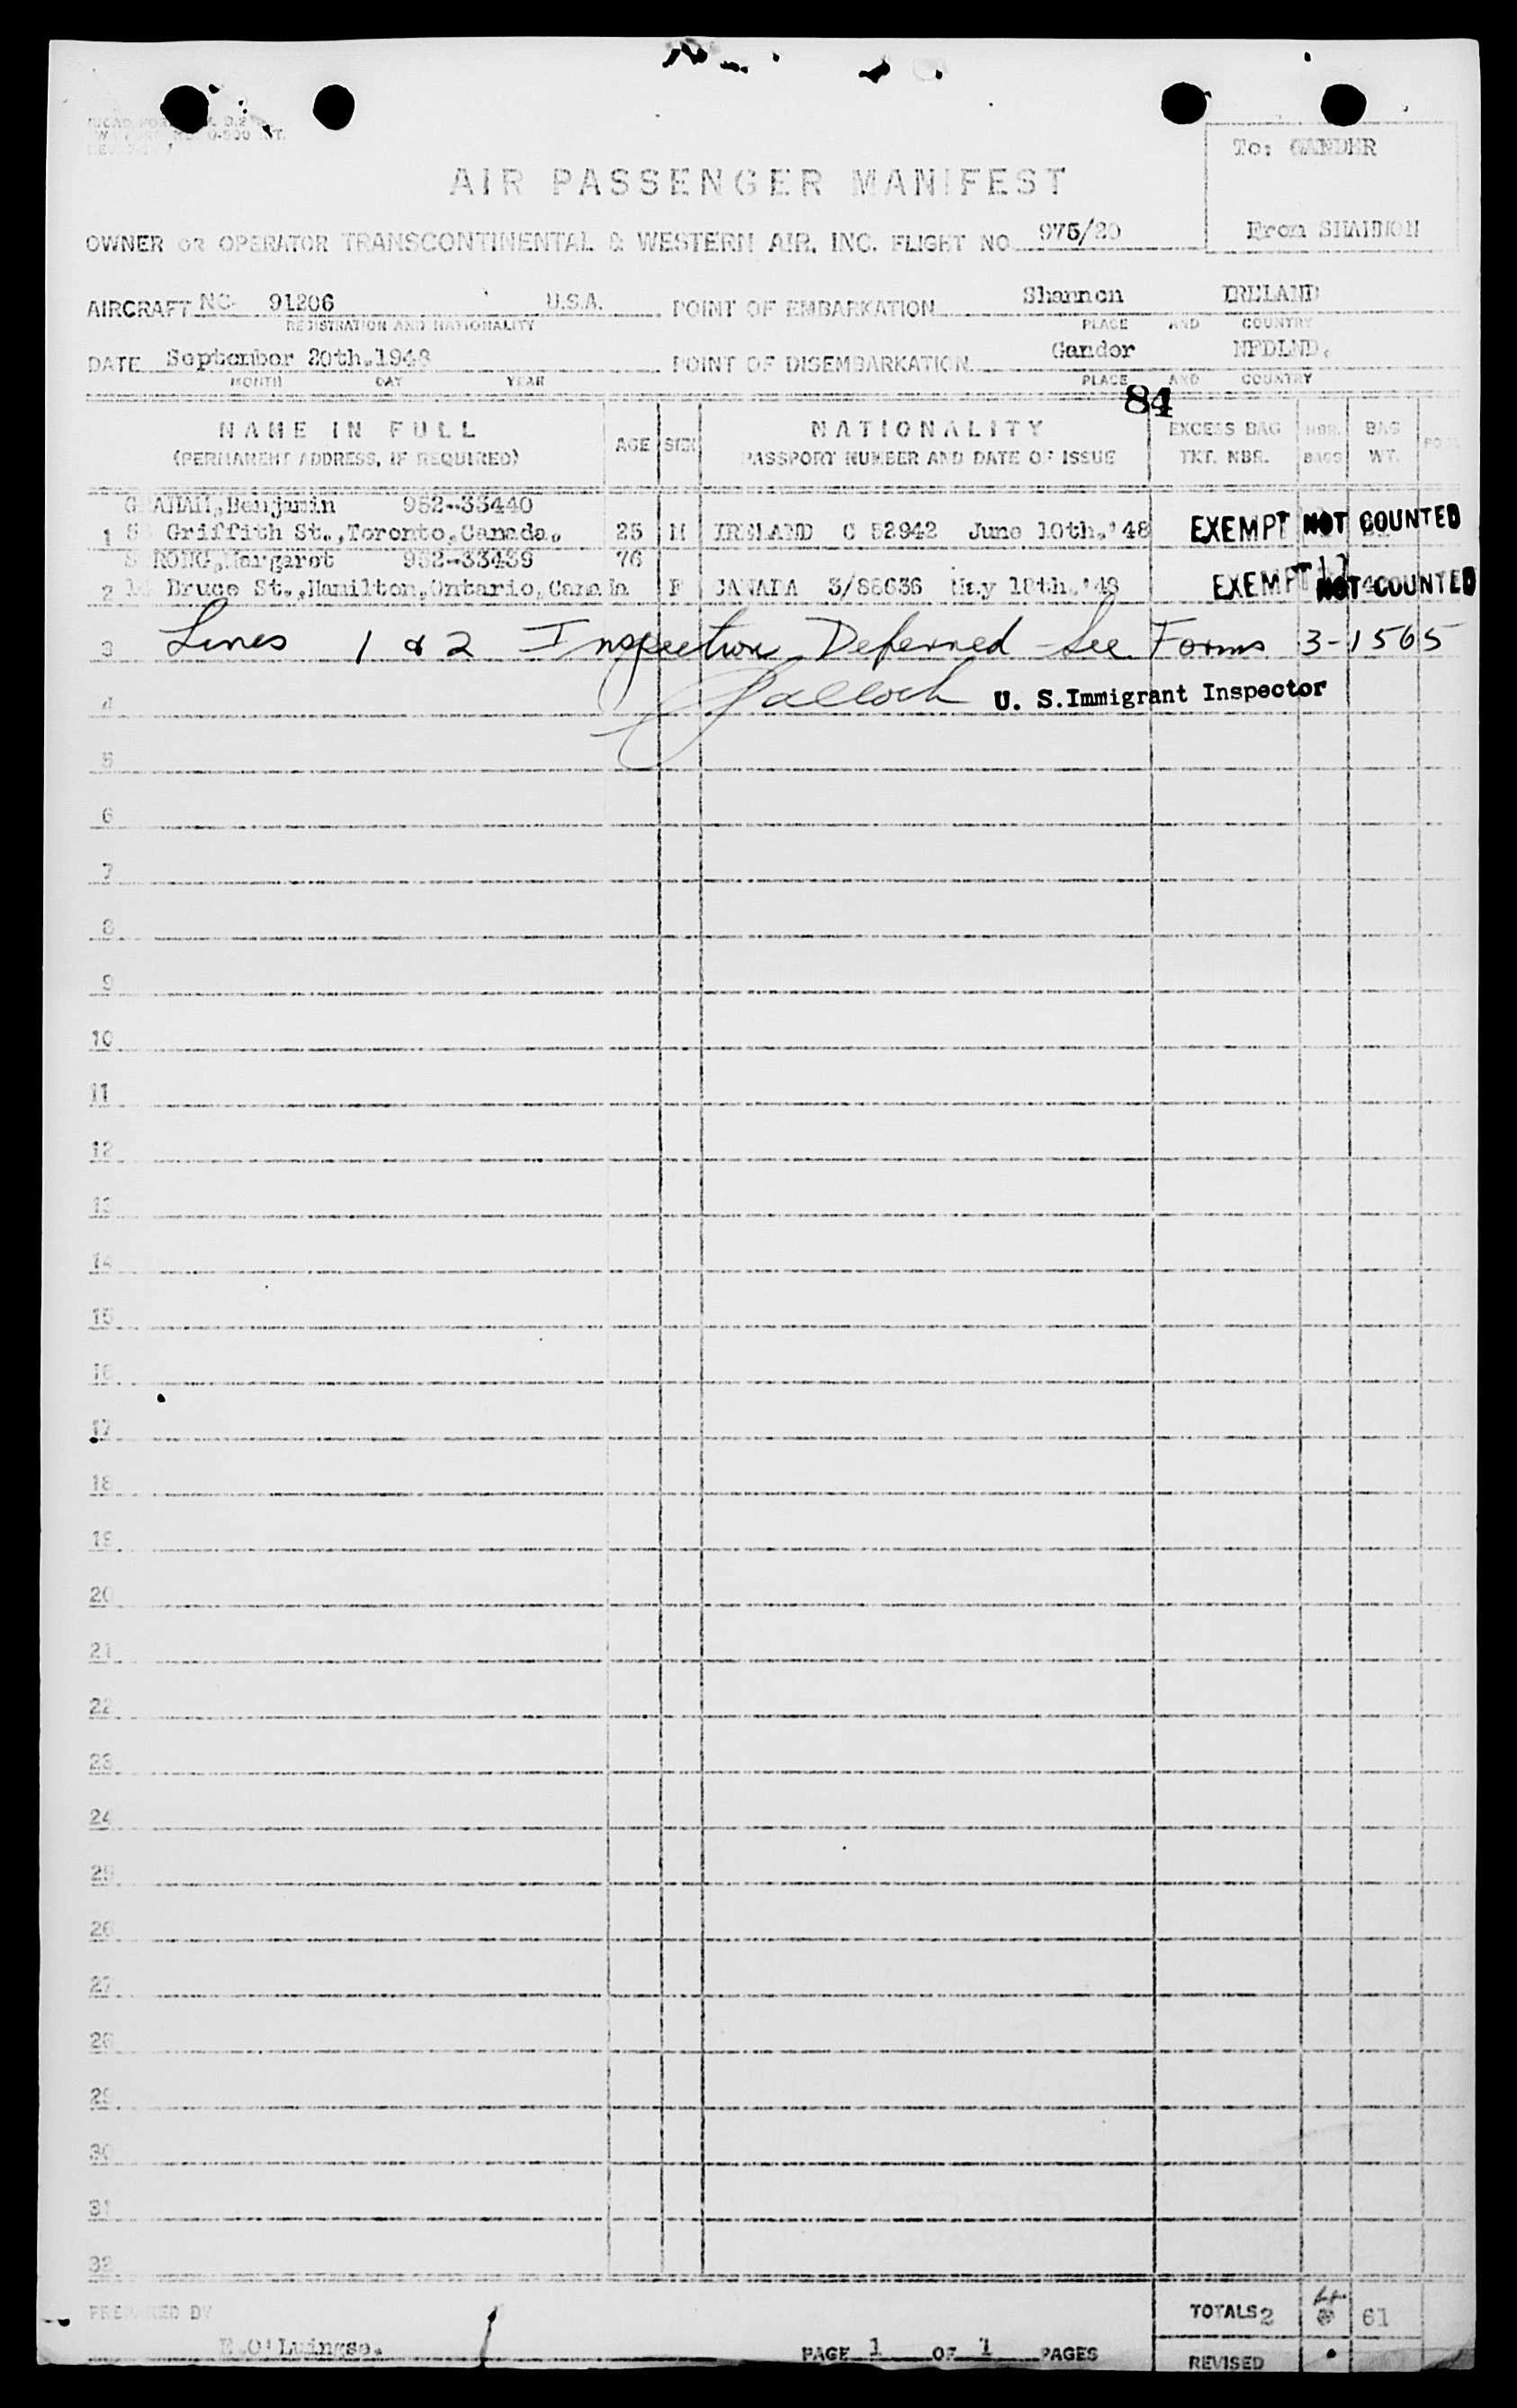 To: GANDER
AIR PASSENGER MANIFEST
From SHANNON
OWNER OR OPERATOR TRANSCONTINENTAL & WESTERN AIR, INC. FLIGHT NO 975/20
AIRCRAFT NC- 91206 U.S.A. POINT OF EMBARKATION Shannon IRELAND
REGISTRATION AND NATIONALITY PLACE AND COUNTRY
DATE September 20th.1948 POINT OF DISEMBARKATION Gander NFDLND.
MONTH DAY YEAR PLACE AND COUNTRY
84
NAME IN FULL AGE SEX NATIONALITY EXCESS BAG NBR. BAG
(PERMANENT ADDRESS, IF REQUIRED) PASSPORT NUMBER AND DATE OF ISSUE TKT. NBR. BAGS WT.
GRAHAM,Benjamin 952-33440
1 Griffith St.,Toronto,Canada. 25 M IRELAND C 52942 June 10th.'48 EXEMPT NOT COUNTED
RONG,Margaret 952-33439 76
2 Bruce St.,Hamilton,Ontario,Canada F CANADA 3/88636 May 18th.'48 EXEMPT NOT COUNTED
3 Lines 1 & 2 Inspection Deferred See Forms 3-1565
4 U. S. Immigrant Inspector
5
6
7
8
9
10
11
12
13
14
15
16
17
18
19
20
21
22
23
24
25
26
27
28
29
30
31
32
PREPARED BY TOTALS 2 61
PAGE 1 OF 1 PAGES
REVISED